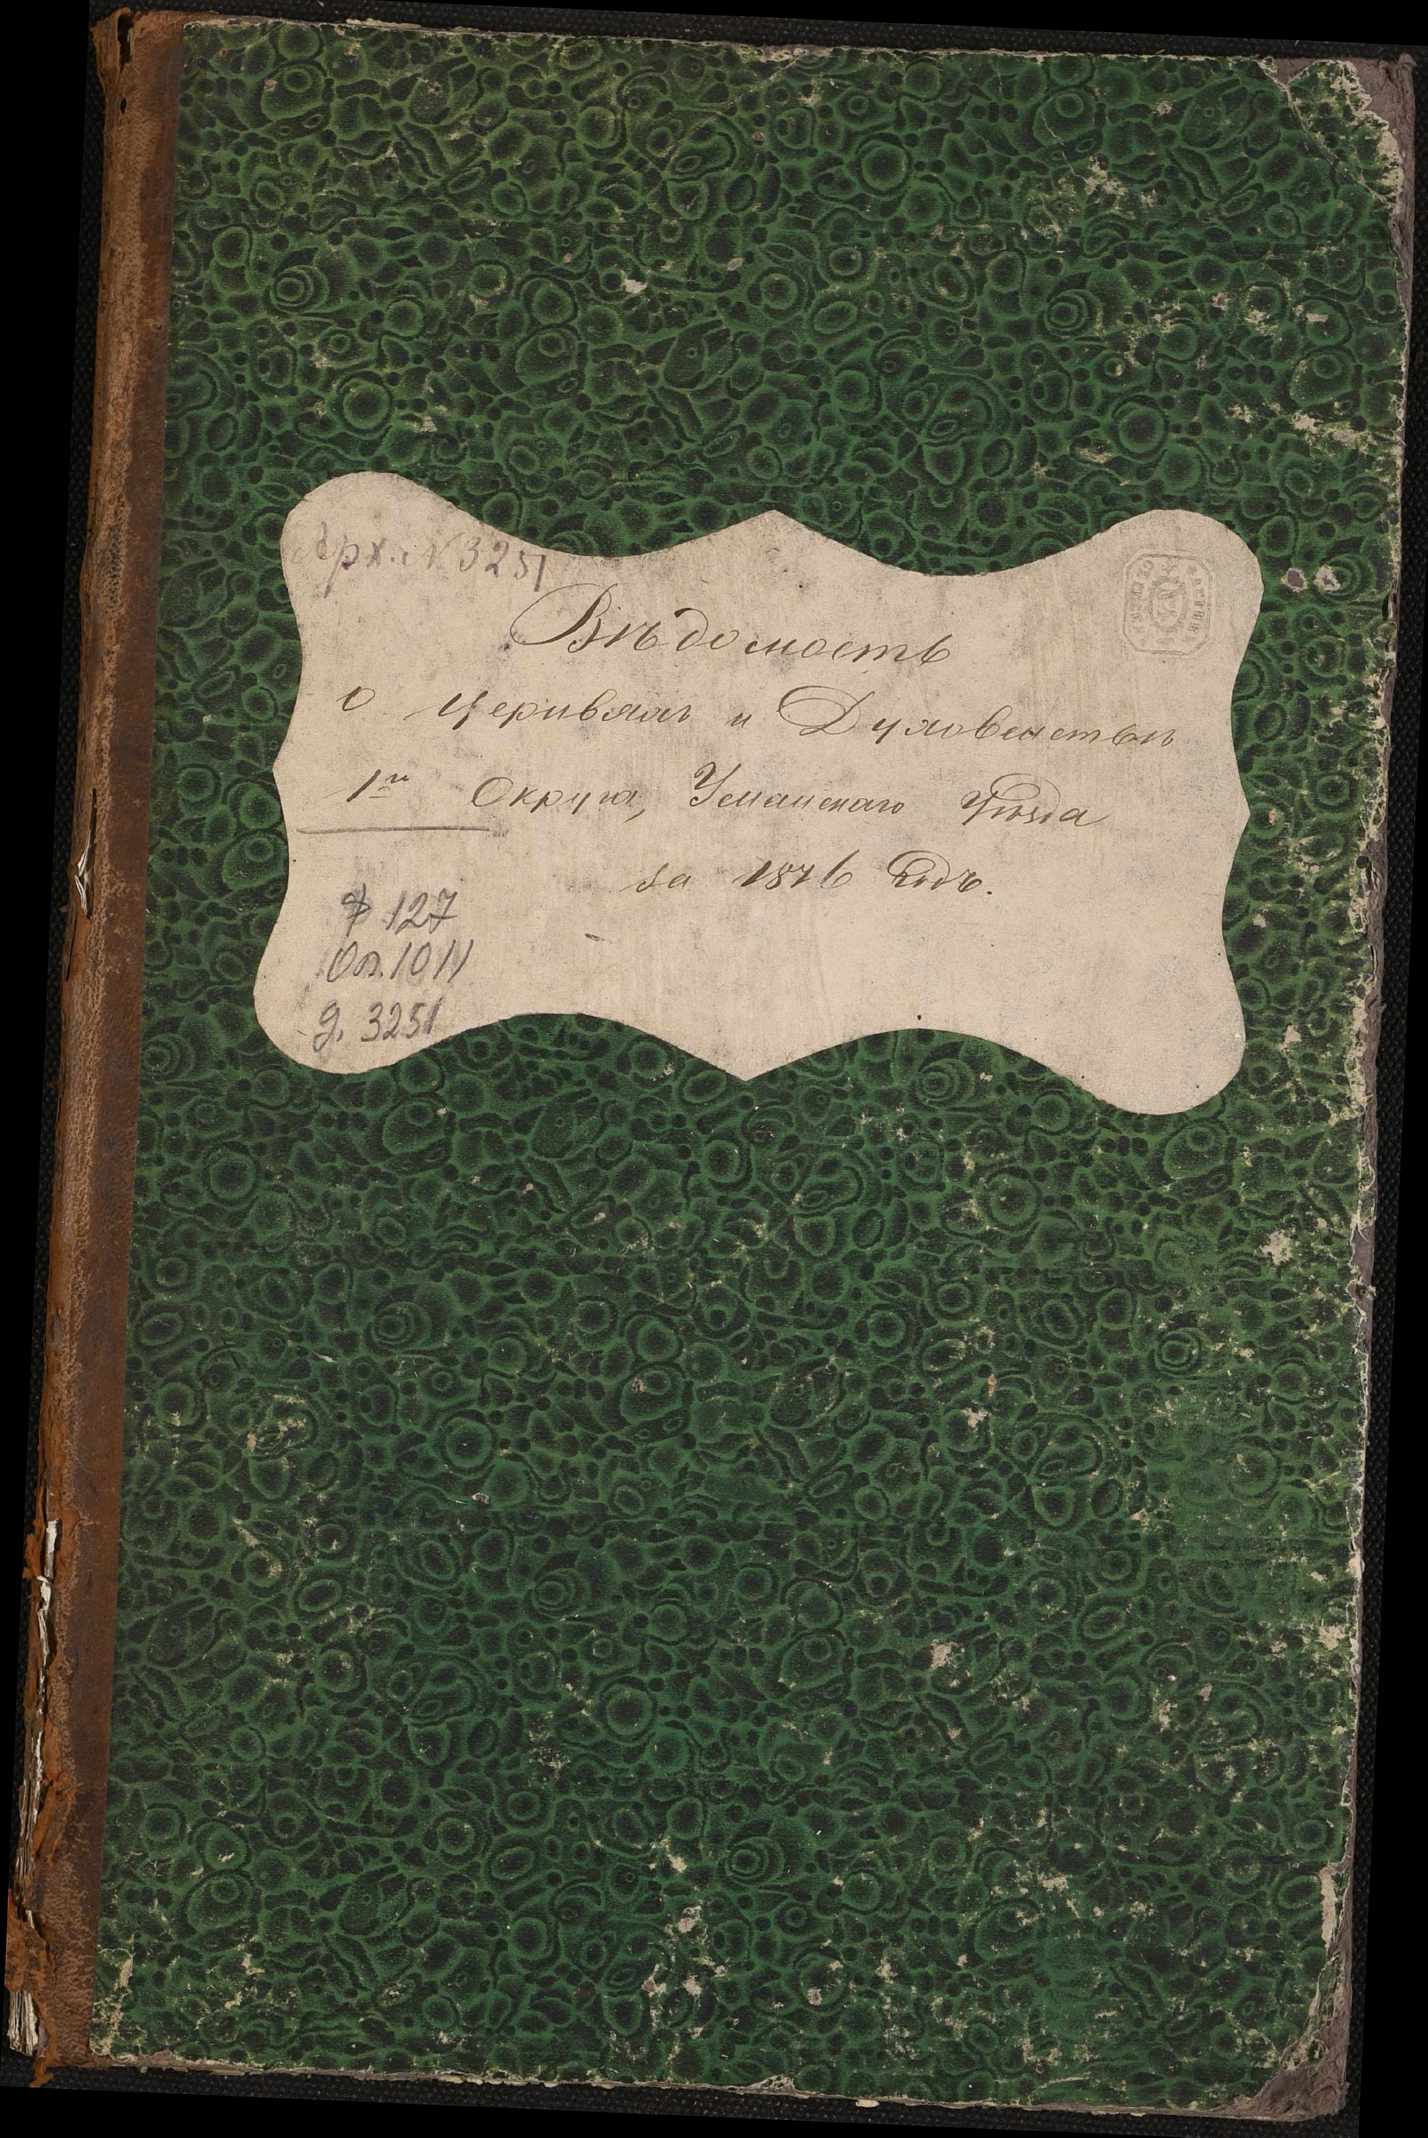 Арх. № 3251
Вѣдомость
о Церквахъ и Духовенствѣ
1го Округа, Уманскаго Уѣзда
за 1876 годъ.
Ф 127
Оп. 1011
д. 3251